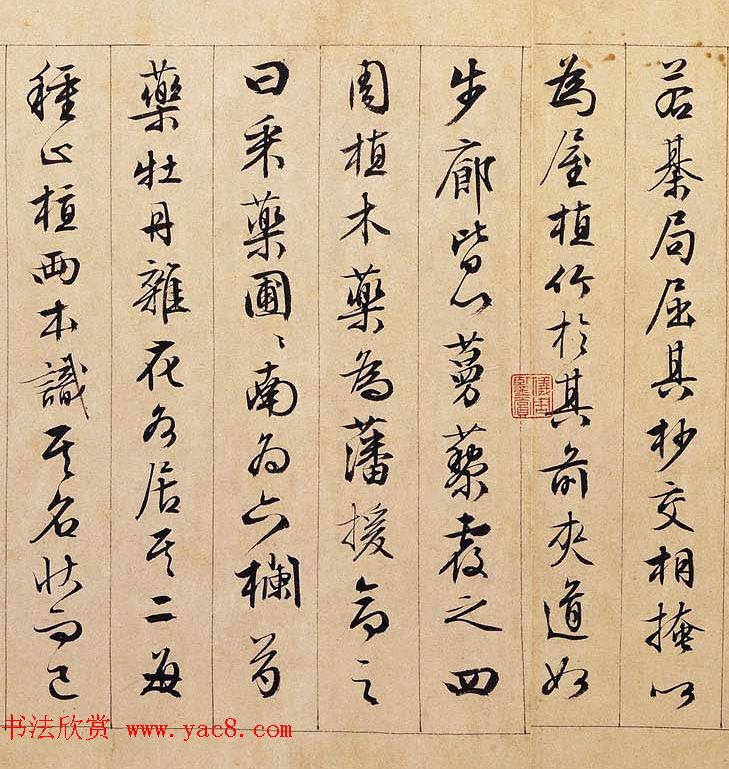 若棊局屈其杪交相掩以
為屋植竹於其前夾道如
步廊皆以蔓藥覆之四
周植木藥為藩援命之
曰采藥圃〻南為六欄芍
藥牡丹雜花各居其二每
種止植兩本識其名狀而已
儀周鑒賞
书法欣赏 www.yac8.com